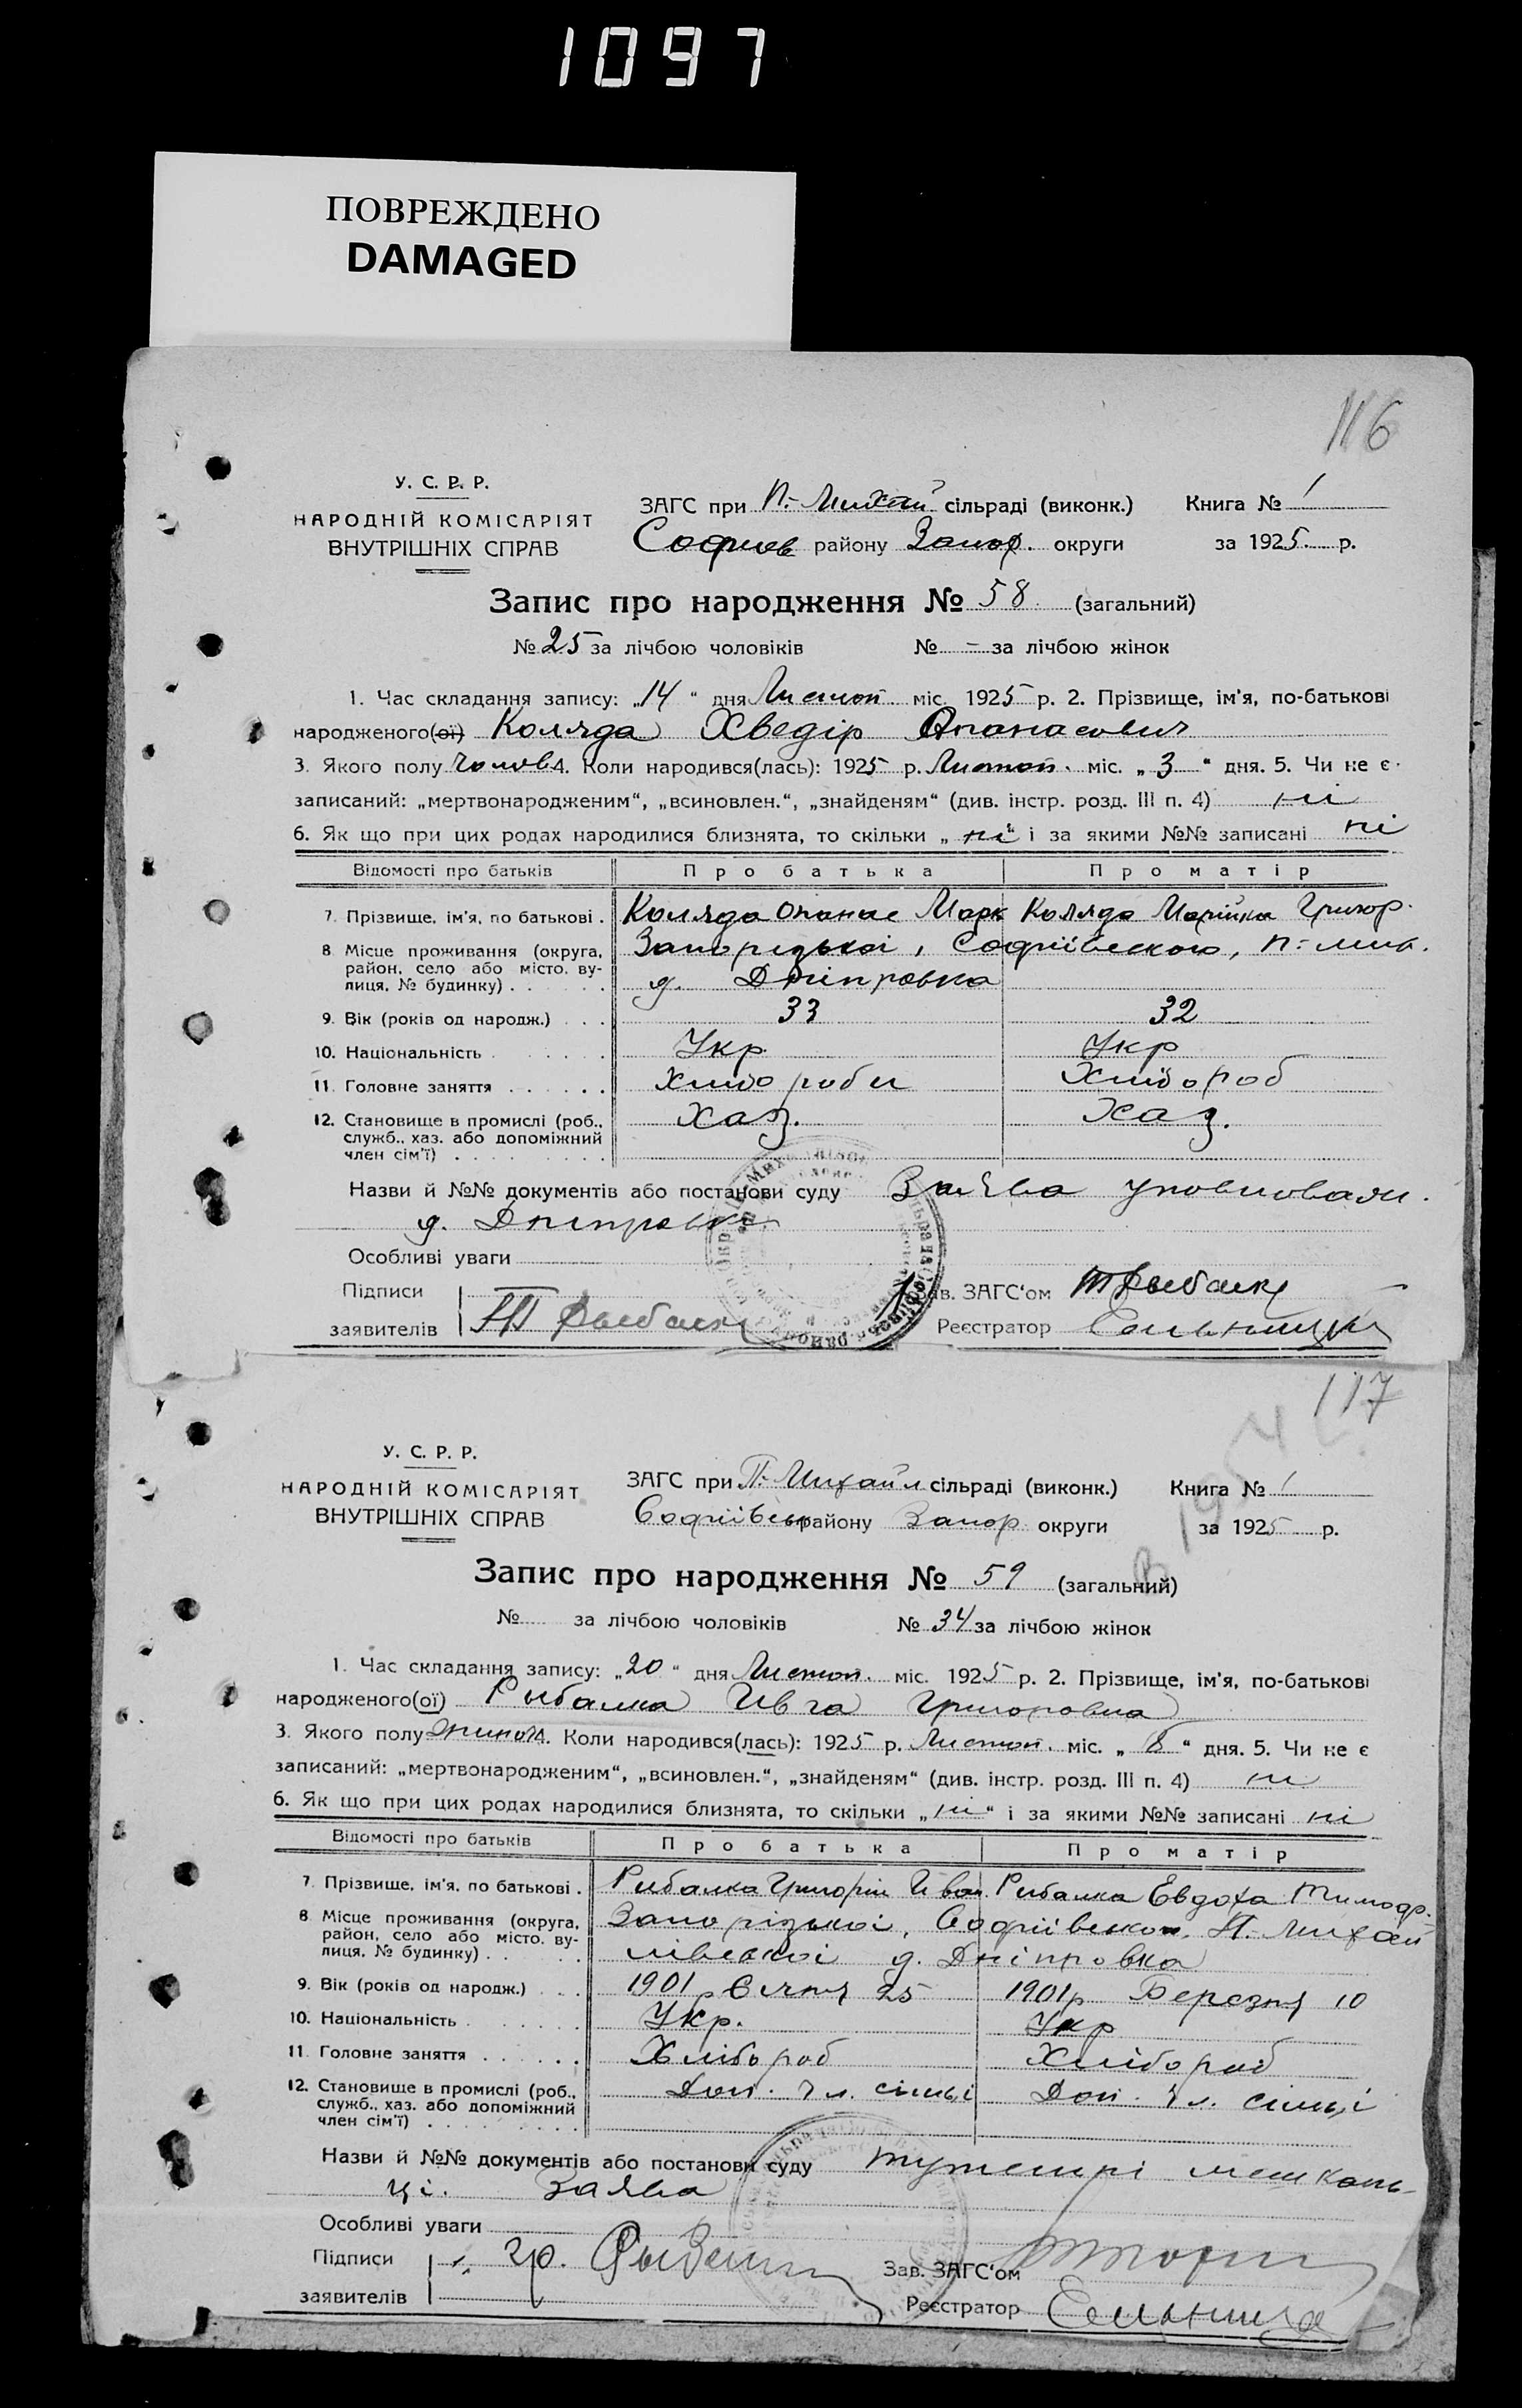 1097
ПОВРЕЖДЕНО
DAMAGED
116
У. С. Р. Р.
НАРОДНІЙ КОМІСАРІЯТ
ВНУТРІШНІХ СПРАВ
ЗАГС при П.-Михай сільраді (виконк.) Книга № 1
Софиев району Запор. округи за 1925 р.
Запис про народження № 58 (загальний)
№ 25 за лічбою чоловіків № – за лічбою жінок
1. Час складання запису: „14" дня Листоп. міс. 1925 р. 2. Прізвище, ім'я, по-батькові
народженого(ої) Коляда Хведір Опанасович
3. Якого полу чолов 4. Коли народився(лась): 1925 р. Листоп. міс. „3" дня. 5. Чи не є
записаний: „мертвонародженим", „всиновлен.", „знайденям" (див. інстр. розд. III п. 4) ні
6. Як що при цих родах народилися близнята, то скільки „ні" і за якими №№ записані ні
Відомості про батьків Про батька Про матір
7. Прізвище, ім'я, по батькові . Коляда Опанас Марк Коляда Марійка Григор.
8 Місце проживання (округа, район, село або місто, вулиця, № будинку) . Запорізькоі, Софіівською, П.-Мих.
д. Дніпровка
9. Вік (років од народж.) . . . 33 32
10. Національність . Укр. Укр
11. Головне заняття . Хлібороби Хлібороб
12. Становище в промислі (роб., Хаз. Хаз.
служб., хаз. або допоміжний
член сім'ї) .
Назви й №№ документів або постанови суду Заява уповновати.
д. Дніпровк
Особливі уваги
Підписи Зав. ЗАГС'ом
заявителів Реєстратор
117
У. С. Р. Р.
НАРОДНІЙ КОМІСАРІЯТ
ВНУТРІШНІХ СПРАВ
ЗАГС при П.-Михайл сільраді (виконк.) Книга № 1
Софіівськ району Запор округи за 1925 р.
Запис про народження № 59 (загальний)
№ за лічбою чоловіків № 34 за лічбою жінок
1. Час складання запису: „20" дня Листоп. міс. 1925 р. 2. Прізвище, ім'я, по-батькові
народженого(ої) Рыбалка Ивга Григоровна
3. Якого полу жиноч 4. Коли народився(лась): 1925 р. Листоп. міс. „6" дня. 5. Чи не є
записаний: „мертвонародженим", „всиновлен.", „знайденям" (див. інстр. розд. III п. 4) ні
6. Як що при цих родах народилися близнята, то скільки „ні" і за якими №№ записані ні
Відомості про батьків Про батька Про матір
7. Прізвище, ім'я, по батькові . Рибалка Григорій Иван Рибалка Евдоха Тимоф.
8 Місце проживання (округа, Запорізькоі, Софіівською, П. Михай
район, село або місто, ву- лівськоі д. Дніпровка
лиця, № будинку) .
9. Вік (років од народж.) . . . 1901 р Січня 25 1901 р Березня 10
10. Національність . Укр. Укр
11 Головне заняття . Хлібороб Хлібороб
12. Становище в промислі (роб., Доп. чл. сімьі Доп. чл. сімьі
служб., хаз. або допоміжний
член сім'ї) .
Назви й №№ документів або постанови суду тутешні мешкань-
ці. Заява
Особливі уваги
Підписи гр. Зав. ЗАГС'ом
заявителів Реєстратор